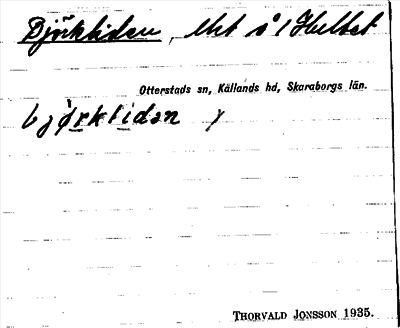 Björkliden, Uht å 1 Hultet
Otterstads sn, Kållands hd, Skaraborgs län.
bjørkliden
THORVALD JONSSON 1935.